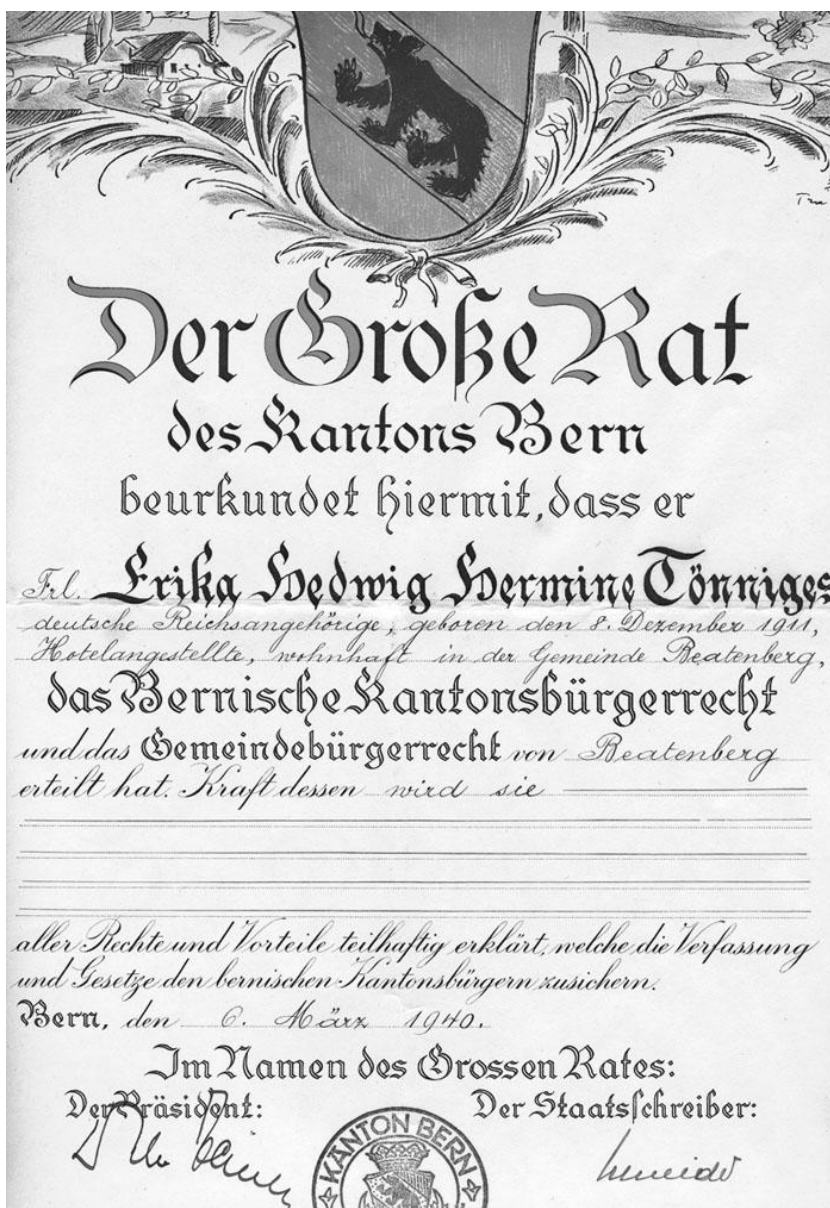 Der Große Rat
des Kantons Bern
beurkundet hiermit, dass er
Frl. Erika Hedwig Hermine Tönniges
deutsche Reichsangehörige, geboren den 8. Dezember 1911,
Hotelangestellte, wohnhaft in der Gemeinde Beatenberg,
das Bernische Kantonsbürgerrecht
und das Gemeindebürgerrecht von Beatenberg
erteilt hat. Kraft dessen wird sie
aller Rechte und Vorteile teilhaftig erklärt, welche die Verfassung
und Gesetze den bernischen Kantonsbürgern zusichern.
Bern, den 6. März 1940.
Im Namen des Grossen Rates:
Der Präsident: Der Staatsschreiber:
KANTON BERN